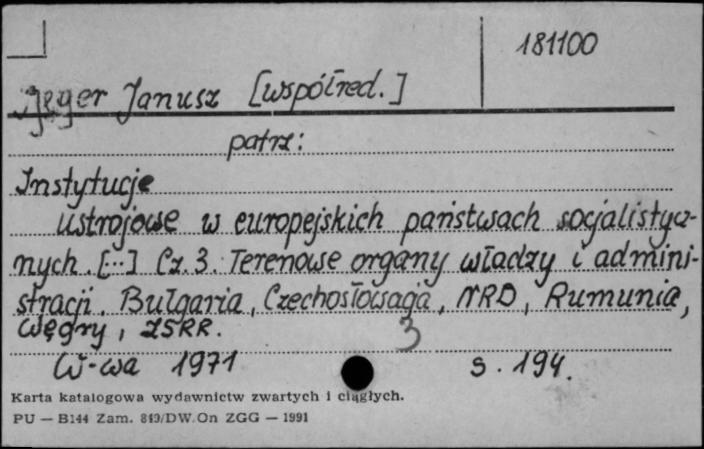 181100
Jeger Janusz [współred.]
patrz:
Instytucje
ustrojowe w europejskich państwach socjalistycz-
nych. [...] Cz. 3. Terenowe organy władzy i admini-
stracji. Bułgaria, Czechosłowacja, NRD, Rumunia,
Węgry, ZSRR.
3
W-wa 1971 s. 194.
Karta katalogowa wydawnictw zwartych i ciągłych.
PU — B144 Zam. 849/DW.On ZGG — 1991